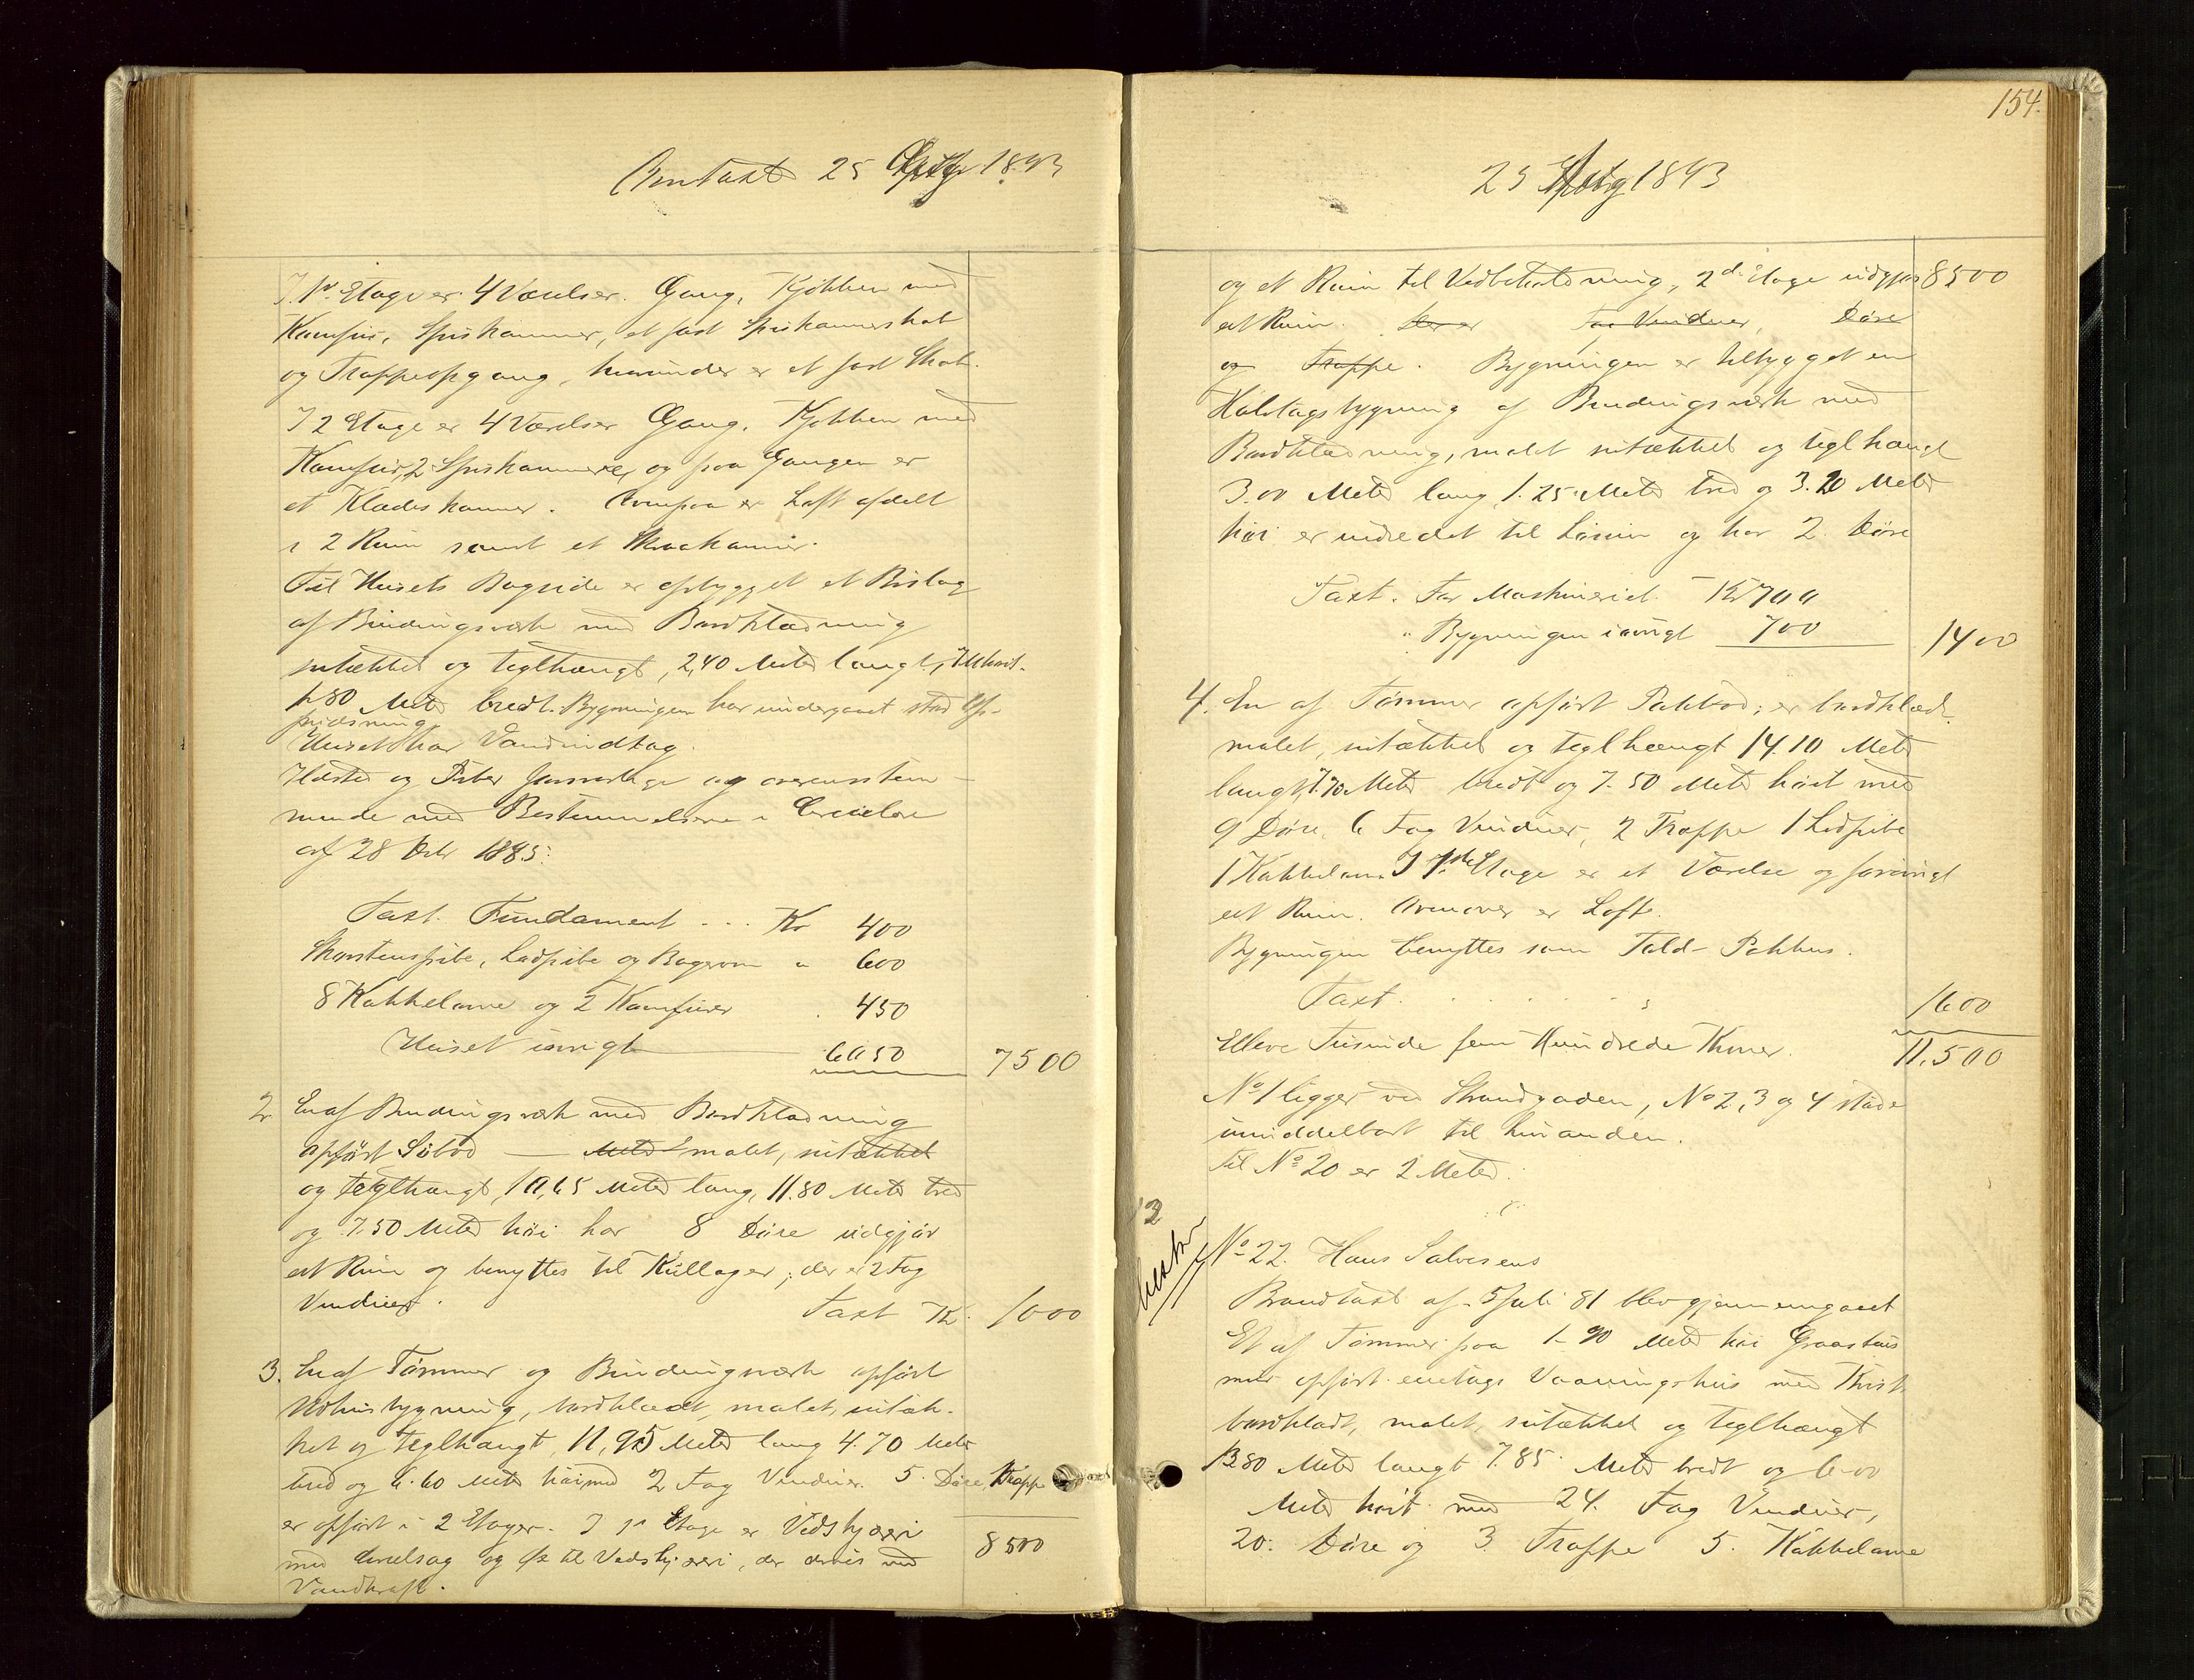 Omtaxt 25 1893
I 1ste Etage er 4 Værelser. Gang, Kjøkken med
Komfur, Spiskammer, et fast Spiskammerskab
og Trappeopgang, herunder er et fast Skab.
I 2 Etage er 4 Værelser Gang, Kjøkken med
Komfur, 2 Spiskammere, og paa Gangen er
et Klædeskammer. Ovenpaa er Loft afdelt
i 2 Rum samt et
Til Husets Bagside er opbygget et Bislag
af Bindingsværk med Bordklædning
sutækket og teglhængt, 2,40 Meter langt,
1.80 Meter bredt. Bygningen har undergaaet stor Op-
pudsning
Huset har Vandindtag.
Ildsted og Piber forsvarlige og overensstem-
mende med Bestemmelserne i Circulære
af 28 Febr 1885:
Taxt. Fundament . . . Kr 400
Skorstenspibe, Lodpibe og Bagerovn " 600
8 Kakkelovne og 2 Komfurer . 450
Huset iøvrigt 6050 7500
2 En af Bindingsværk med Bordklædning
opført Søbod — Meter malet, sutækket
og teglhængt, 10,65 Meter lang, 11.80 Meter bred
og 7.50 Meter høi har 8 Døre udgjør
et Rum og benyttes til Kullager; der er 2 Fag
Vinduer.
Taxt Kr. 1000
3. En af Tømmer og Bindingsværk opført
Udhusbygning, bordklædt, malet, sutæk-
ket og teglhængt, 11,95 Meter lang 4.70 Meter
bred og 6.60 Meter høi med 2 Fag Vinduer. 5 Døre, Trappe
er opført i 2 Etager. I 1ste Etage er Vedskjæreri
med og til Vedskjæreri, der drives ved
Vandkraft.
8500
154.
25 1893
og et Rum til Vedbeholdning, 2den Etage udgjør 8500
et Rum. Der er Fag Vinduer, Døre
og Trappe. Bygningen er tilbygget en
Halvtagsbygning af Bindingsværk med
Bordklædning, malet sutækket og teglhængt
3.00 Meter lang, 1.25 Meter bred og 3.20 Meter
høi er indredet til og har 2 Døre
Taxt. For Maskineriet Kr 700
" Bygningen iøvrigt 700 1400
4. En af Tømmer opført Pakbod; er bordklædt
malet, sutækket og teglhængt 14.10 Meter
langt, 7.70 Meter bredt og 7.50 Meter høit med
9 Døre, 6 Fag Vinduer, 2 Trappe 1 Lodpibe
1 Kakkelovn. I 1ste Etage er et Værelse og forøvrigt
et Rum. Ovenover er Lofte.
Bygningen benyttes som Told-Pakhus.
Taxt . . . . . . 1600
Elleve Tusinde fem Hundrede Kroner. 11.500
No 1 ligger ved Strandgaden, No 2, 3 og 4 støde
umiddelbart til hinanden.
til No 20 er 2 Meter.
No 22. Hans Salvesens
Brandtaxt af 5 Juli 81 blev gjennemgaaet
Et af Tømmer paa 1-90 Meter høi Graastens
mur opført enetages Vaaningshus med Kvist
bordklædt, malet, sutækket og teglhængt
13.80 Meter langt 7.85 Meter bredt og 6.00
Meter høit med 24. Fag Vinduer,
20. Døre og 3 Trappe 5. Kakkelovne